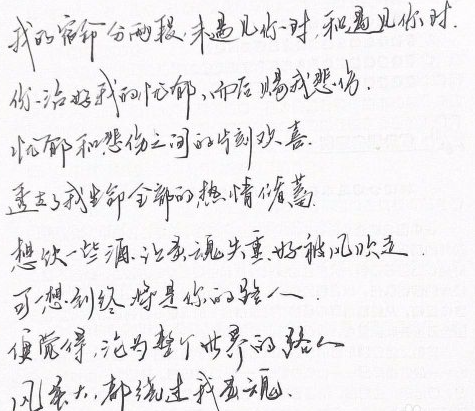 我的宿命分两段，未遇见你时，和遇见你时.
你治好我的忧郁，而后赐我悲伤.
忧郁和悲伤之间的片刻欢喜.
透支了我生命全部的热情储蓄.
想饮一些酒，让灵魂失重，好被风吹走.
可一想到终将是你的路人.
便觉得，沦为整个世界的路人
风虽大，都绕过我灵魂.